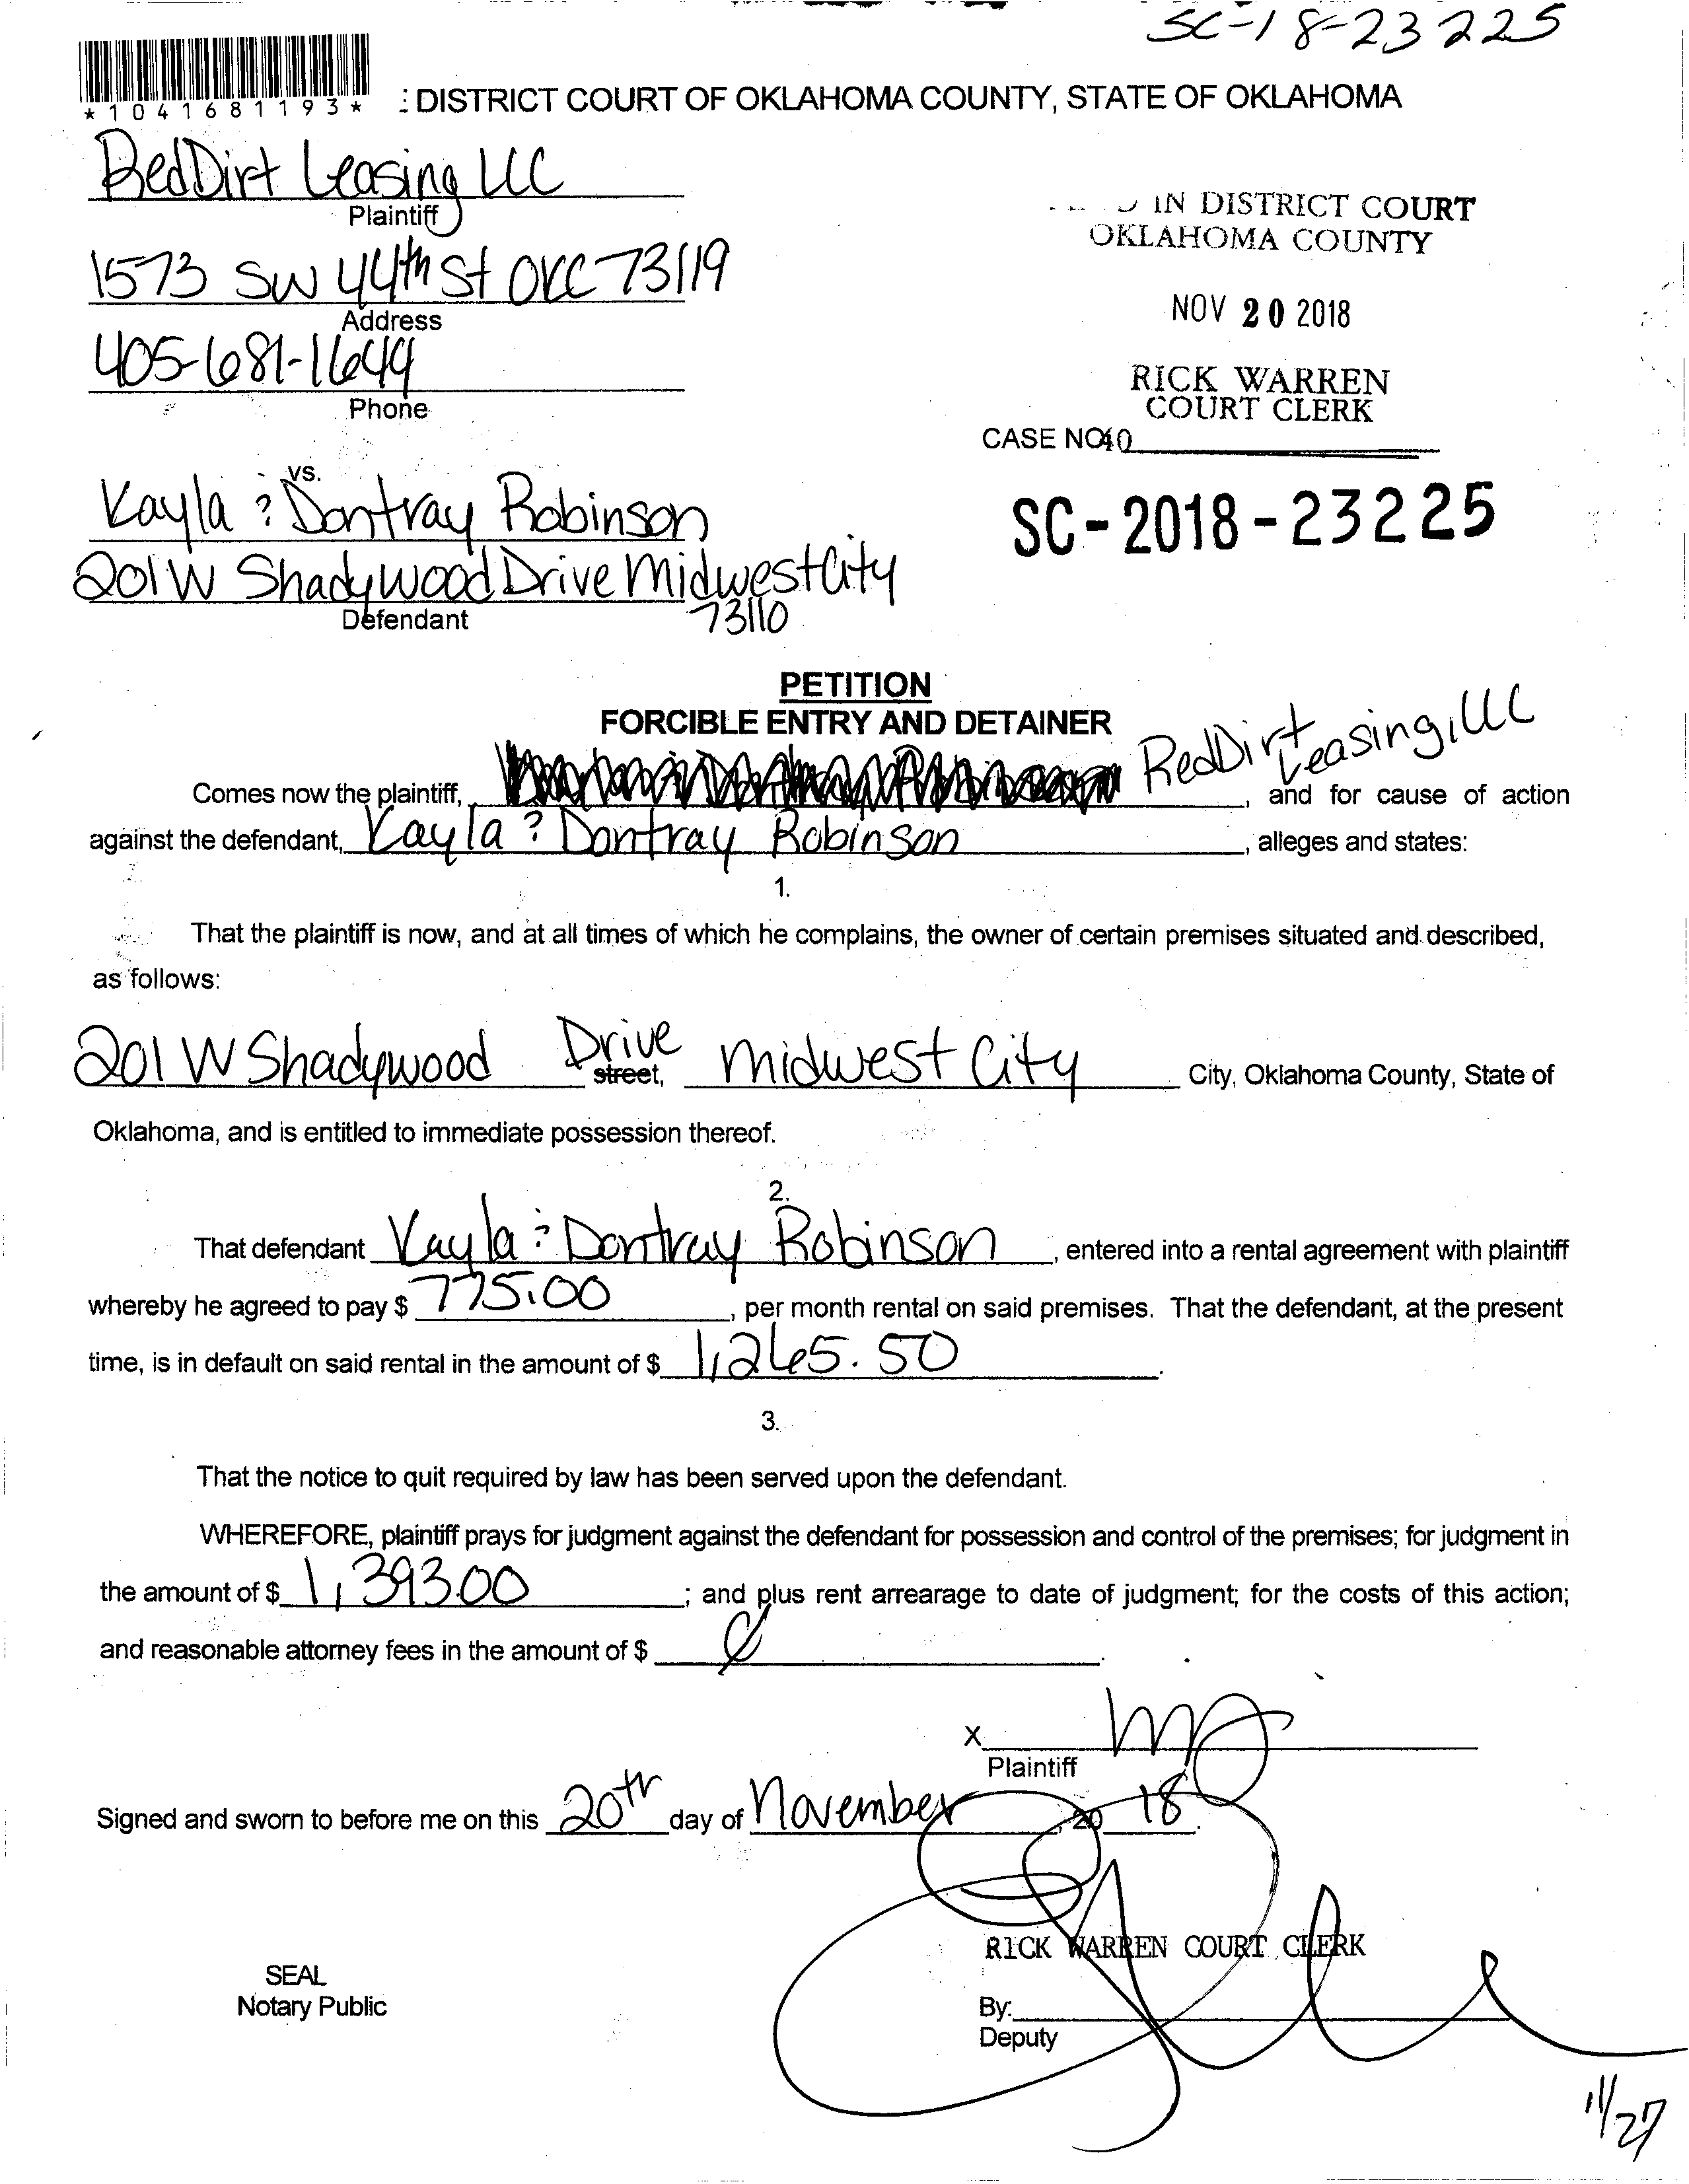 SC-18-23225
*1041681193*
: DISTRICT COURT OF OKLAHOMA COUNTY, STATE OF OKLAHOMA
RedDirt Leasing LLC
Plaintiff
IN DISTRICT COURT
OKLAHOMA COUNTY
1573 SW 44th St OKC 73119
Address
NOV 20 2018
405-681-1644
Phone
RICK WARREN
COURT CLERK
CASE NO
40
vs.
Kayla & Dontray Robinson
SC-2018-23225
201 W Shadywood Drive Midwest City
73110
Defendant
PETITION
FORCIBLE ENTRY AND DETAINER
Comes now the plaintiff, RedDirt Leasing, LLC, and for cause of action
against the defendant, Kayla & Dontray Robinson, alleges and states:
1.
That the plaintiff is now, and at all times of which he complains, the owner of certain premises situated and described,
as follows:
201 W Shadywood Drive street, Midwest City City, Oklahoma County, State of
Oklahoma, and is entitled to immediate possession thereof.
2.
That defendant Kayla & Dontray Robinson, entered into a rental agreement with plaintiff
whereby he agreed to pay $ 775.00, per month rental on said premises. That the defendant, at the present
time, is in default on said rental in the amount of $ 1,265.50.
3.
That the notice to quit required by law has been served upon the defendant.
WHEREFORE, plaintiff prays for judgment against the defendant for possession and control of the premises; for judgment in
the amount of $ 1,393.00; and plus rent arrearage to date of judgment; for the costs of this action;
and reasonable attorney fees in the amount of $ .
X
Plaintiff
Signed and sworn to before me on this 20th day of November, 20 18.
RICK WARREN COURT CLERK
SEAL
Notary Public
By:
Deputy
11/27